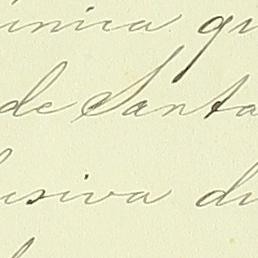 única gu
de Santa
usiva du